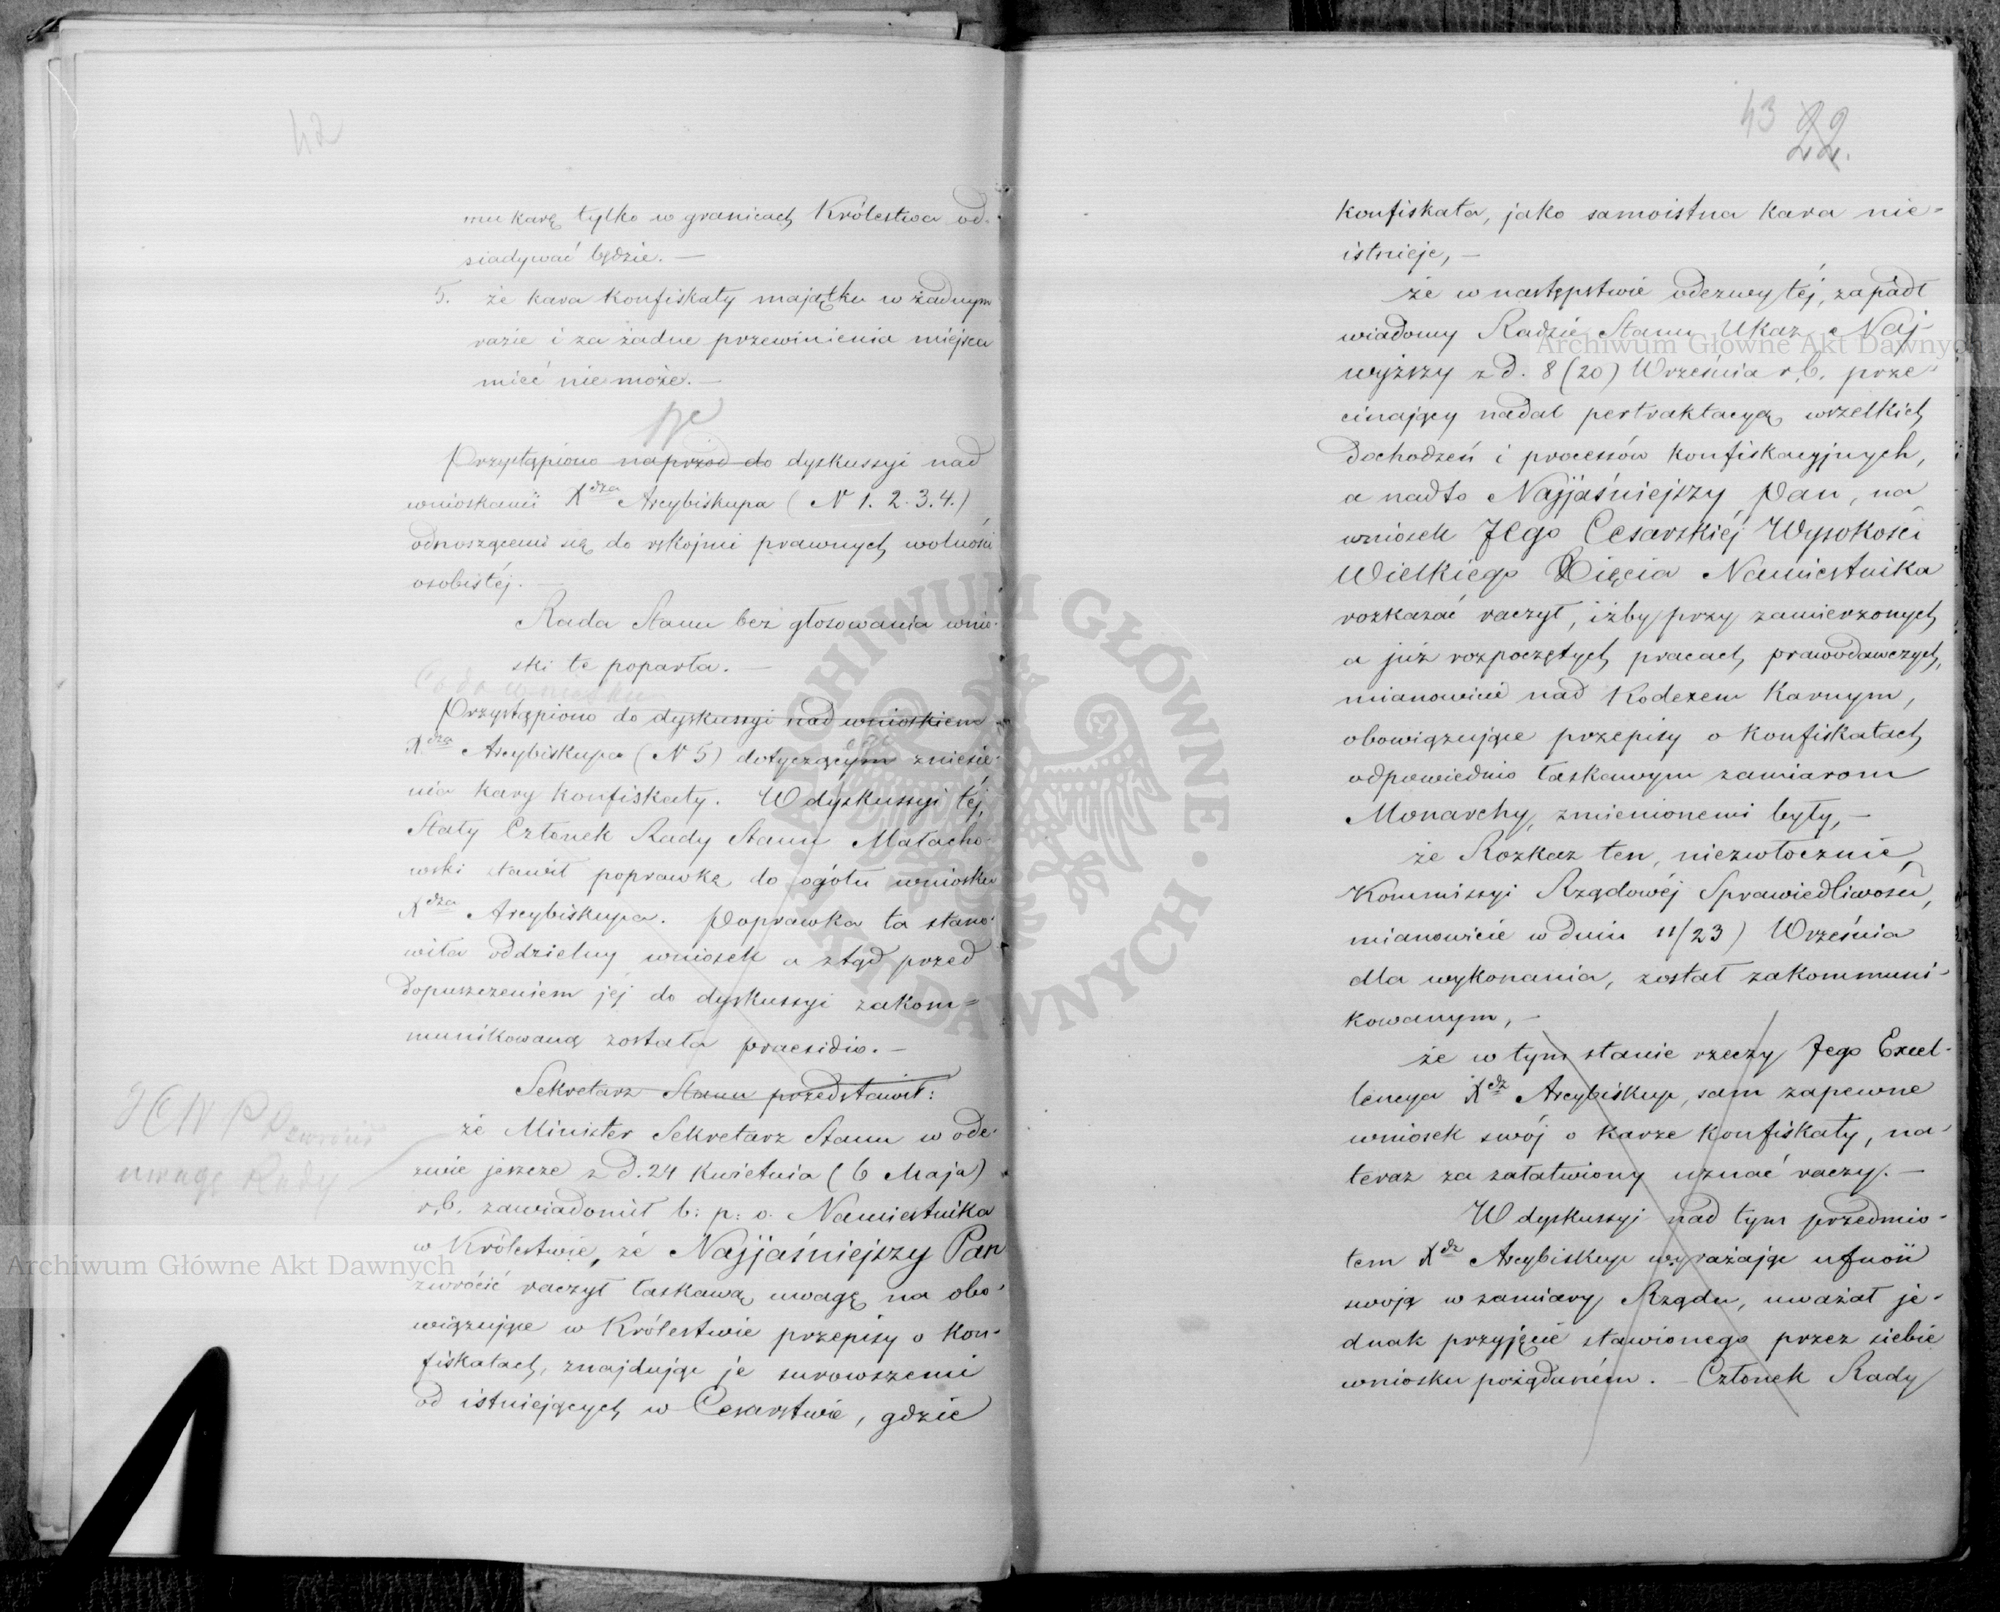 42
mu karę tylko w granicach Królestwa od-
siadywać będzie. —
5. że kara konfiskaty majątku w żadnym
razie i za żadne przewinienia miejsca
mieć nie może. —
Przystąpiono naprzód do dyskussyi nad
wnioskami Xdza Arcybiskupa (N 1. 2. 3. 4.)
odnoszącemi się do rękojmi prawnych wolności
osobistéj. —
Rada Stanu bez głosowania wnio-
ski te poparła. —
Co do wniosku
Przystąpiono do dyskussyi nad wnioskiem
Xdza Arcybiskupa (N 5) dotyczącym zniesie-
nia kary konfiskaty. W dyskussyi téj,
Stały Członek Rady Stanu Małacho-
wski stawił poprawkę do ogółu wniosku
Xdza Arcybiskupa. Poprawka ta stano-
wiła oddzielny wniosek a ztąd przed
dopuszczeniem jéj do dyskussyi zakom=
munikowaną została praesidio. —
Sekretarz Stanu przedstawił:
że Minister Sekretarz Stanu w ode-
zwie jeszcze z d. 24 Kwietnia (6 Maja)
r.b. zawiadomił b: p: o. Namiestnika
w Królestwie, że Najjaśniejszy Pan
zwrócić raczył łaskawą uwagę na obo-
wiązujące w Królestwie przepisy o kon-
fiskatach, znajdując je surowszemi
od istniejących w Cesarstwie, gdzie
uwagę Rady
43 22.
konfiskata, jako samoistna kara nie-
istnieje, —
że w następstwie odezwy téj, zapadł
wiadomy Radzie Stanu Ukaz Naj-
wyższy z d. 8 (20) Września r.b. prze-
cinający nadal pertraktacyą wszelkich
dochodzeń i processów konfiskacyjnych,
a nadto Najjaśniejszy Pan, na
wniosek Jego Cesarskiéj Wysokości
Wielkiego Xięcia Namiestnika
rozkazać raczył, iżby przy zamierzonych
a już rozpoczętych pracach prawodawczych,
mianowicie nad Kodexem Karnym,
obowiązujące przepisy o konfiskatach
odpowiednio łaskawym zamiarom
Monarchy, zmienionemi były, —
że Rozkaz ten, niezwłocznie,
Kommissyi Rządowéj Sprawiedliwości,
mianowicie w dniu 11/23) Września
dla wykonania, został zakommuni-
kowanym, —
że w tym stanie rzeczy Jego Excel-
lencya Xdz Arcybiskup, sam zapewne
wniosek swój o karze konfiskaty, na-
teraz za załatwiony uznać raczy. —
W dyskussyi nad tym przedmio-
tem Xdz Arcybiskup wyrażając ufność
swoją w zamiary Rządu, uważał je-
dnak przyjęcie stawionego przez siebie
wniosku pożądaném. — Członek Rady
Archiwum Główne Akt Dawnych
Archiwum Główne Akt Dawnych
ARCHIWUM GŁÓWNE AKT DAWNYCH